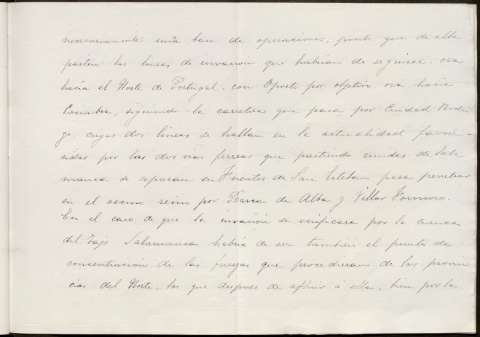 necesariamente una base de operaciones, puesto que de ella
parten las lineas de invasion que habrian de seguirse, ora
hacia el Norte de Portugal, con Oporto por objetivo ora hacia
Coimbra, siguiendo la carretera que pasa por Ciudad Rodri-
go, cuyas dos lineas se hallan en la actualidad favore-
cidas por las dos vias ferreas que partiendo unidas de Sala-
manca se separan en Fuentes de San Esteban para penetrar
en el vecino reino por Barca de Alba y Villar Formoso.
En el caso de que la invasión se verificara por la cuenca
del Tajo Salamanca habria de ser tambien el punto de
concentración de las fuerzas que procedieran de las provin-
cias del Norte, las que despues de afluir á ella, bien por la